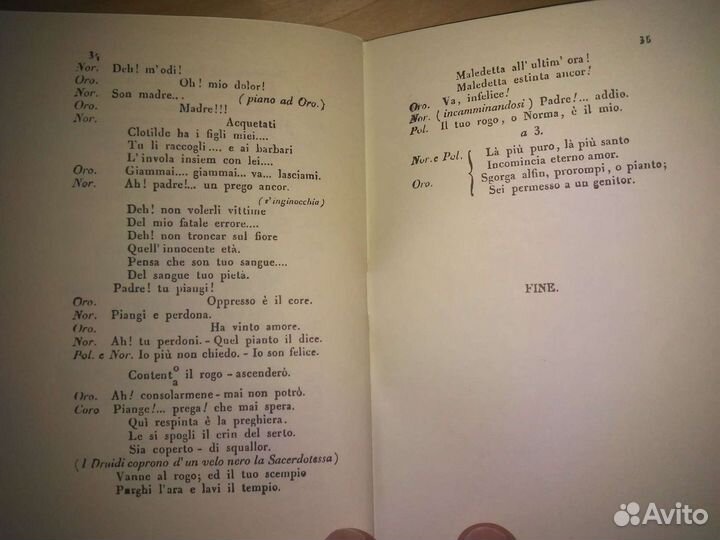 34
Nor. Deh! m'odi!
Oro. Oh! mio dolor!
Nor. Son madre... (piano ad Oro.)
Oro. Madre!!!
Nor. Acquetati
Clotilde ha i figli miei....
Tu li raccogli.... e ai barbari
L'invola insiem con lei....
Oro. Giammai.... giammai... va... lasciami.
Nor. Ah! padre!... un prego ancor.
(s'inginocchia)
Deh! non volerli vittime
Del mio fatale errore....
Deh! non troncar sul fiore
Quell'innocente età.
Pensa che son tuo sangue....
Del sangue tuo pietà.
Padre! tu piangi!
Oro. Oppresso è il core.
Nor. Piangi e perdona.
Oro. Ha vinto amore.
Nor. Ah! tu perdoni. - Quel pianto il dice.
Pol. e Nor. Io più non chiedo. - Io son felice.
Content o/a il rogo - ascenderò.
Oro. Ah! consolarmene - mai non potrò.
Coro Piange!... prega! che mai spera.
Quì respinta è la preghiera.
Le si spogli il crin del serto.
Sia coperto - di squallor.
(I Druidi coprono d'un velo nero la Sacerdotessa)
Vanne al rogo; ed il tuo scempio
Purghi l'ara e lavi il tempio.
35
Maledetta all'ultim'ora!
Maledetta estinta ancor!
Oro. Va, infelice!
Nor. (incamminandosi) Padre!... addio.
Pol. Il tuo rogo, o Norma, è il mio.
a 3.
Nor. e Pol. Là più puro, là più santo
Incomincia eterno amor.
Oro. Sgorga alfin, prorompi, o pianto;
Sei permesso a un genitor.
FINE.
Avito